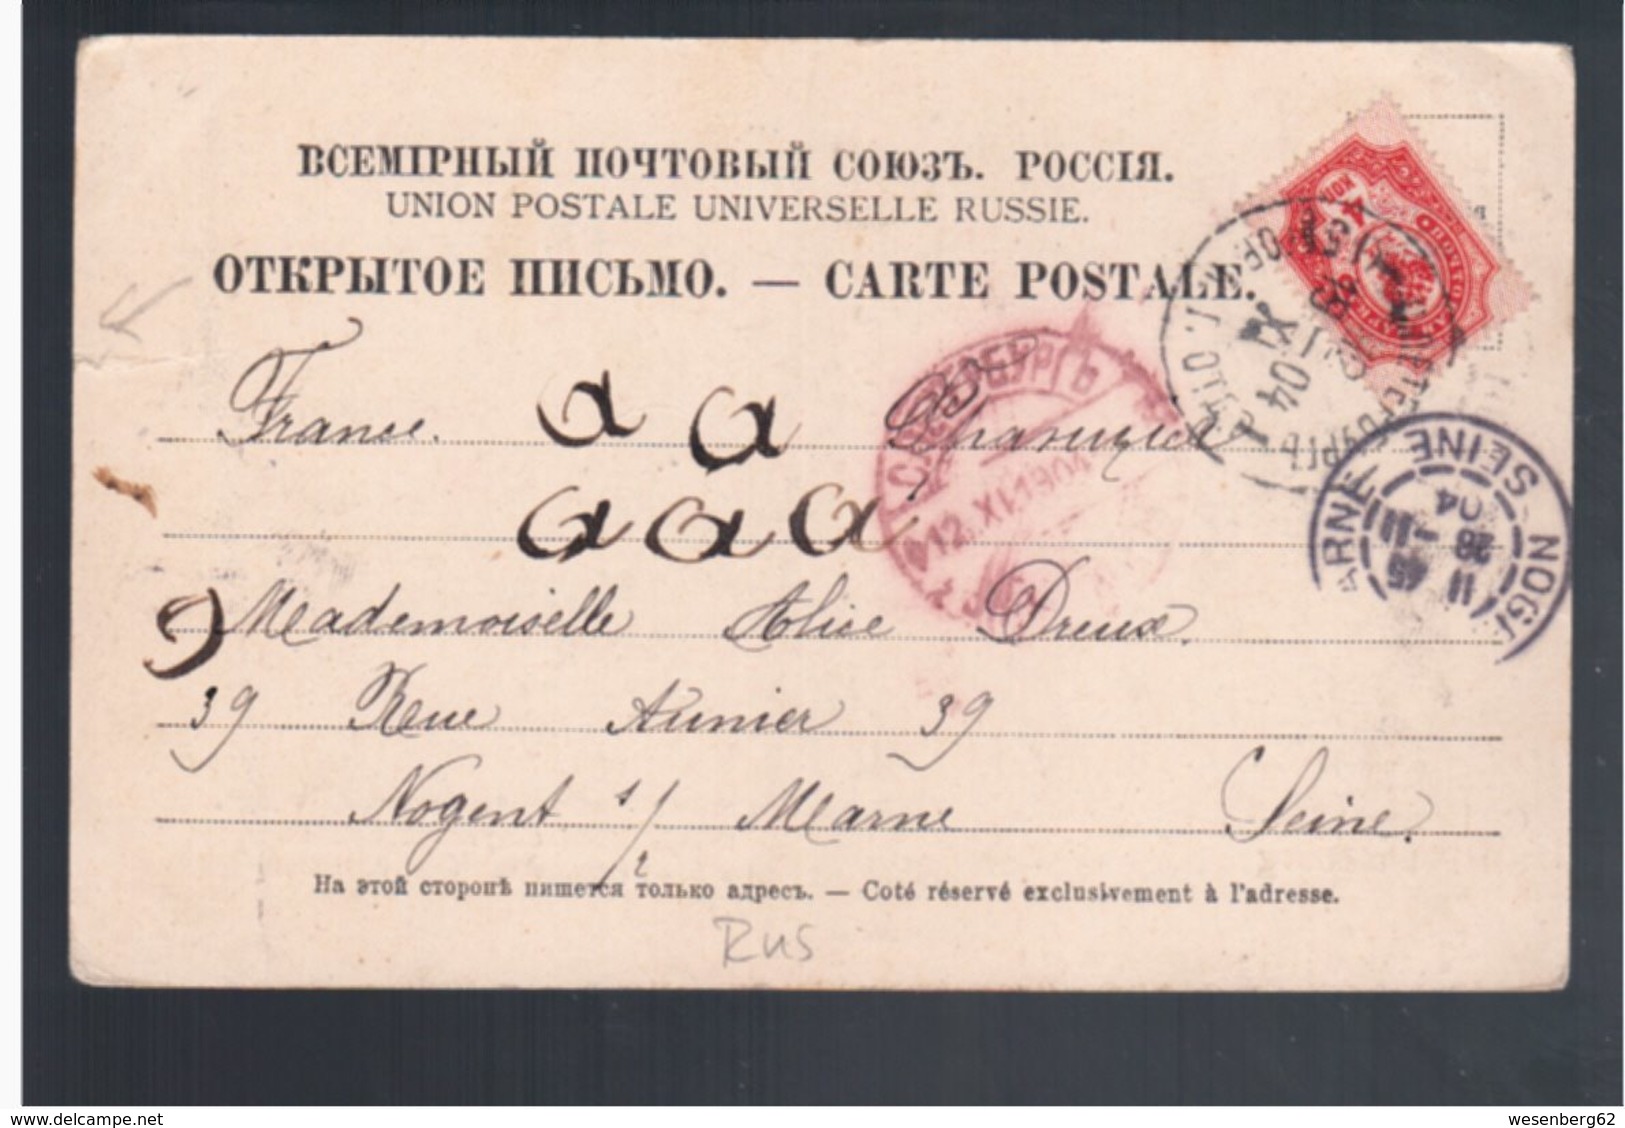 ВСЕМІРНЫЙ ПОЧТОВЫЙ СОЮЗЪ. РОССІЯ.
UNION POSTALE UNIVERSELLE RUSSIE.
ОТКРЫТОЕ ПИСЬМО. — CARTE POSTALE.
4
France. a a Франція
С.ПЕТЕРБУРГЪ
12.XI.1904
a a a
NOGENT MARNE SEINE
11 45
28 -11
04
Mademoiselle Alice Dreux.
39 Rue Aunier 39
Nogent s/ Marne Seine.
На этой сторонѣ пишется только адресъ. — Coté réservé exclusivement à l'adresse.
Rus
www.delcampe.net
wesenberg62